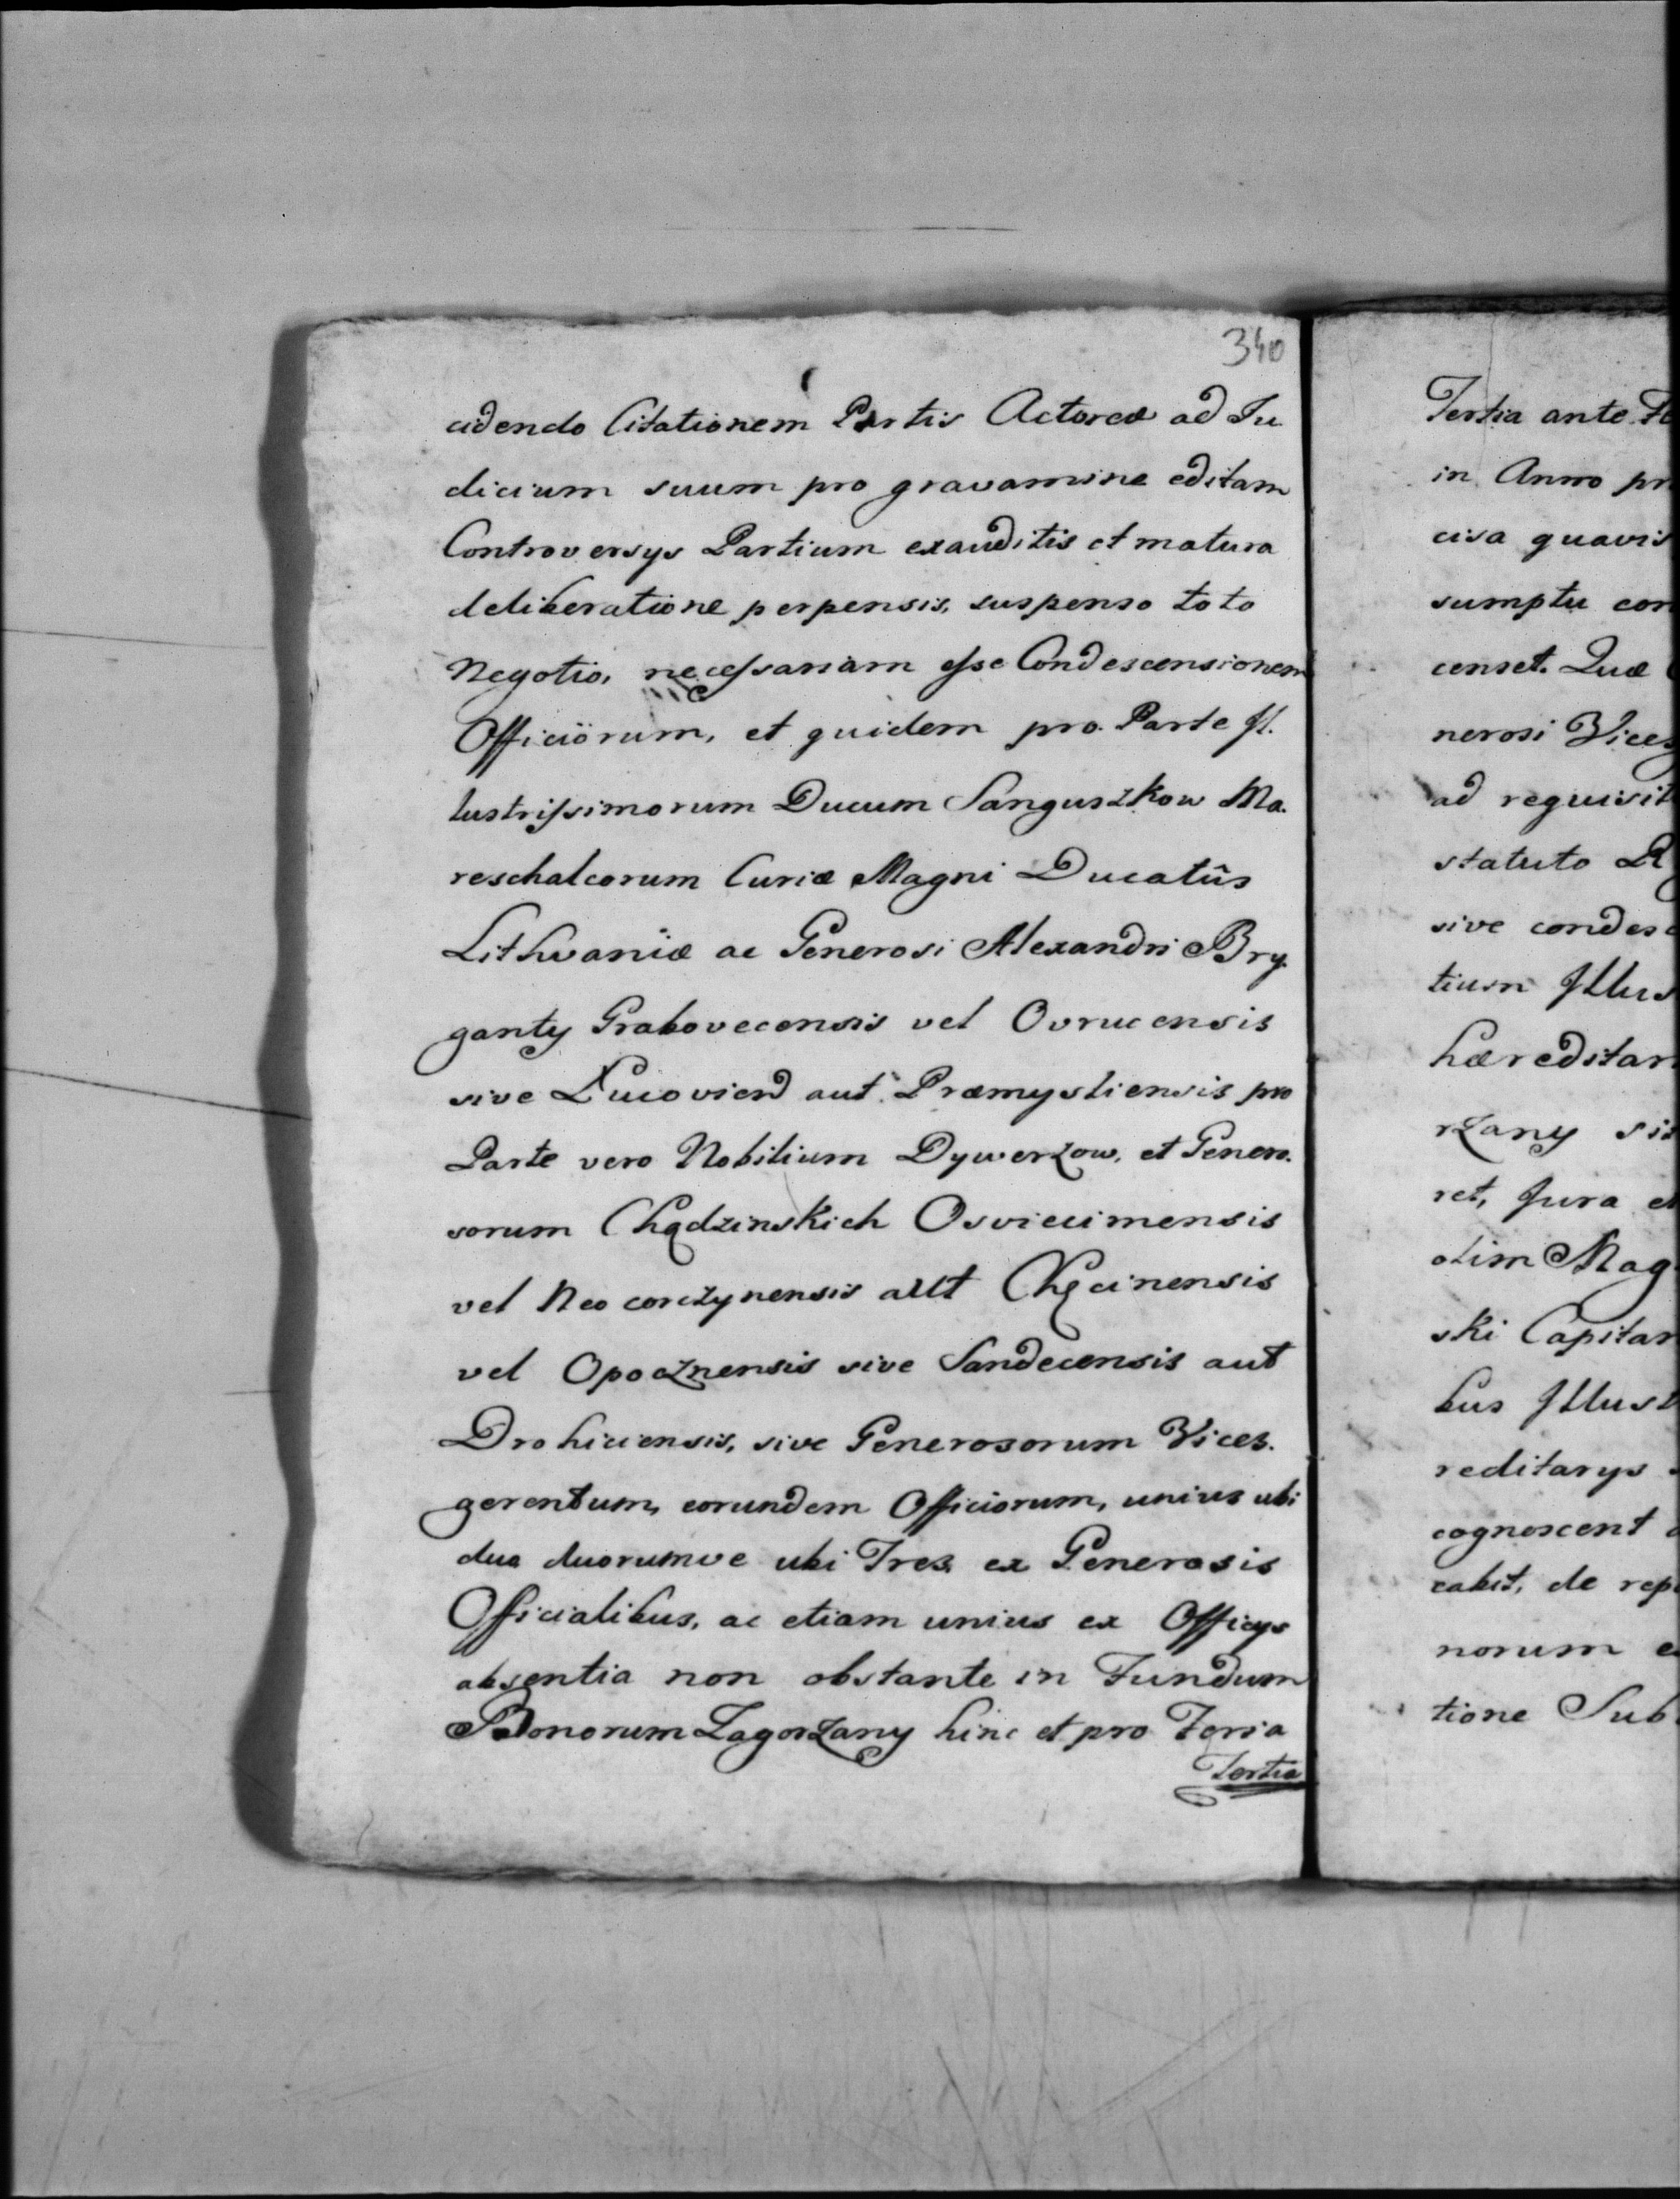 340
cidendo Citationem Partis Actoreæ ad Ju
dicium suum pro gravamine editam
Controversys Partium exauditis et matura
deliberatione perpensis, suspenso toto
Negotio, necessariam esse Condescensionem
Officiorum, et quidem pro Parte Il.
lustrissimorum Ducum Sanguszkow Ma.
reschalcorum Curiæ Magni Ducatûs
Lithvaniæ ac Generosi Alexandri Bry.
ganty Grabovecensis vel Ovrucensis
sive aut Præmysliensis pro
Parte vero Nobilium Dywerzow, et Genero.
sorum Chądzinskich Osviecimensis
vel Neo corczynensis aut Chęcinensis
vel Opocznensis sive Sandecensis aut
Drohiciensis, sive Generosorum Vices.
gerentum, eorundem Officiorum, unius ubi
duo duorumve ubi Tres ex Generosis
Officialibus, ac etiam unius ex Officys
absentia non obstante in Fundum
Bonorum Zagorzany hinc et pro Feria
Tertia
Tertia ante
in Anno pr
cisa quavis
sumptu con
censet. Quæ
nerosi Vices
ad requisit
statuto
sive condes
tium Illus
hæreditar
rzany sis
ret, Jura et
olim Mag
ski Capitan
bus Illust
reditarys
cognoscent
cabit, de rep
norum e
tione Sub